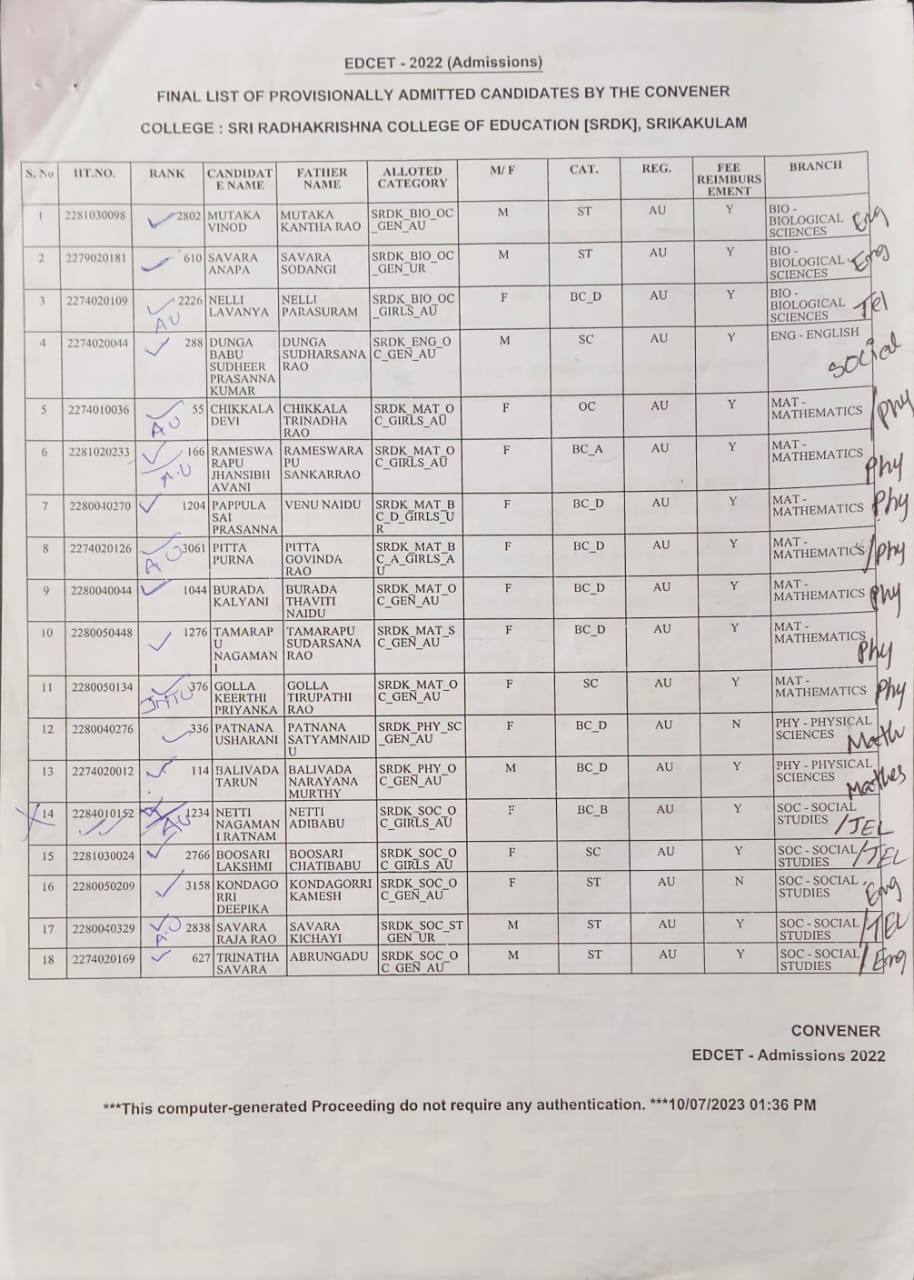 EDCET - 2022 (Admissions)
FINAL LIST OF PROVISIONALLY ADMITTED CANDIDATES BY THE CONVENER
COLLEGE : SRI RADHAKRISHNA COLLEGE OF EDUCATION [SRDK], SRIKAKULAM
S. No HT.NO. RANK CANDIDAT FATHER ALLOTED M/ F CAT. REG. FEE BRANCH
E NAME NAME CATEGORY REIMBURS
EMENT
1 2281030098 2802 MUTAKA MUTAKA SRDK_BIO_OC M ST AU Y BIO -
VINOD KANTHA RAO _GEN_AU BIOLOGICAL Eng
SCIENCES
2 2279020181 610 SAVARA SAVARA SRDK_BIO_OC M ST AU Y BIO -
ANAPA SODANGI _GEN_UR BIOLOGICAL Eng
SCIENCES
3 2274020109 2226 NELLI NELLI SRDK_BIO_OC F BC_D AU Y BIO -
AU LAVANYA PARASURAM _GIRLS_AU BIOLOGICAL Tel
SCIENCES
4 2274020044 288 DUNGA DUNGA SRDK_ENG_O M SC AU Y ENG - ENGLISH
BABU SUDHARSANA C_GEN_AU Social
SUDHEER RAO
PRASANNA
KUMAR
5 2274010036 55 CHIKKALA CHIKKALA SRDK_MAT_O F OC AU Y MAT -
AU DEVI TRINADHA C_GIRLS_AU MATHEMATICS /Phy
RAO
6 2281020233 166 RAMESWA RAMESWARA SRDK_MAT_O F BC_A AU Y MAT -
A.U RAPU PU C_GIRLS_AU MATHEMATICS Phy
JHANSIBH SANKARRAO
AVANI
7 2280040270 1204 PAPPULA VENU NAIDU SRDK_MAT_B F BC_D AU Y MAT -
SAI C_D_GIRLS_U MATHEMATICS Phy
PRASANNA R
8 2274020126 3061 PITTA PITTA SRDK_MAT_B F BC_D AU Y MAT -
AU PURNA GOVINDA C_A_GIRLS_A MATHEMATICS /Phy
RAO U
9 2280040044 1044 BURADA BURADA SRDK_MAT_O F BC_D AU Y MAT -
KALYANI THAVITI C_GEN_AU MATHEMATICS Phy
NAIDU
10 2280050448 1276 TAMARAP TAMARAPU SRDK_MAT_S F BC_D AU Y MAT -
U SUDARSANA C_GEN_AU MATHEMATICS
NAGAMAN RAO Phy
I
11 2280050134 376 GOLLA GOLLA SRDK_MAT_O F SC AU Y MAT -
JNTU KEERTHI TIRUPATHI C_GEN_AU MATHEMATICS Phy
PRIYANKA RAO
12 2280040276 336 PATNANA PATNANA SRDK_PHY_SC F BC_D AU N PHY - PHYSICAL
USHARANI SATYAMNAID _GEN_AU SCIENCES Math
U
13 2274020012 114 BALIVADA BALIVADA SRDK_PHY_O M BC_D AU Y PHY - PHYSICAL
TARUN NARAYANA C_GEN_AU SCIENCES Mathes
MURTHY
14 2284010152 1234 NETTI NETTI SRDK_SOC_O F BC_B AU Y SOC - SOCIAL
AU NAGAMAN ADIBABU C_GIRLS_AU STUDIES /TEL
I RATNAM
15 2281030024 2766 BOOSARI BOOSARI SRDK_SOC_O F SC AU Y SOC - SOCIAL /TEL
LAKSHMI CHATIBABU C_GIRLS_AU STUDIES
16 2280050209 3158 KONDAGO KONDAGORRI SRDK_SOC_O F ST AU N SOC - SOCIAL
RRI KAMESH C_GEN_AU STUDIES Eng
DEEPIKA
17 2280040329 2838 SAVARA SAVARA SRDK_SOC_ST M ST AU Y SOC - SOCIAL /TEL
RAJA RAO KICHAYI _GEN_UR STUDIES
18 2274020169 627 TRINATHA ABRUNGADU SRDK_SOC_O M ST AU Y SOC - SOCIAL /Eng
SAVARA C_GEN_AU STUDIES
CONVENER
EDCET - Admissions 2022
***This computer-generated Proceeding do not require any authentication. ***10/07/2023 01:36 PM